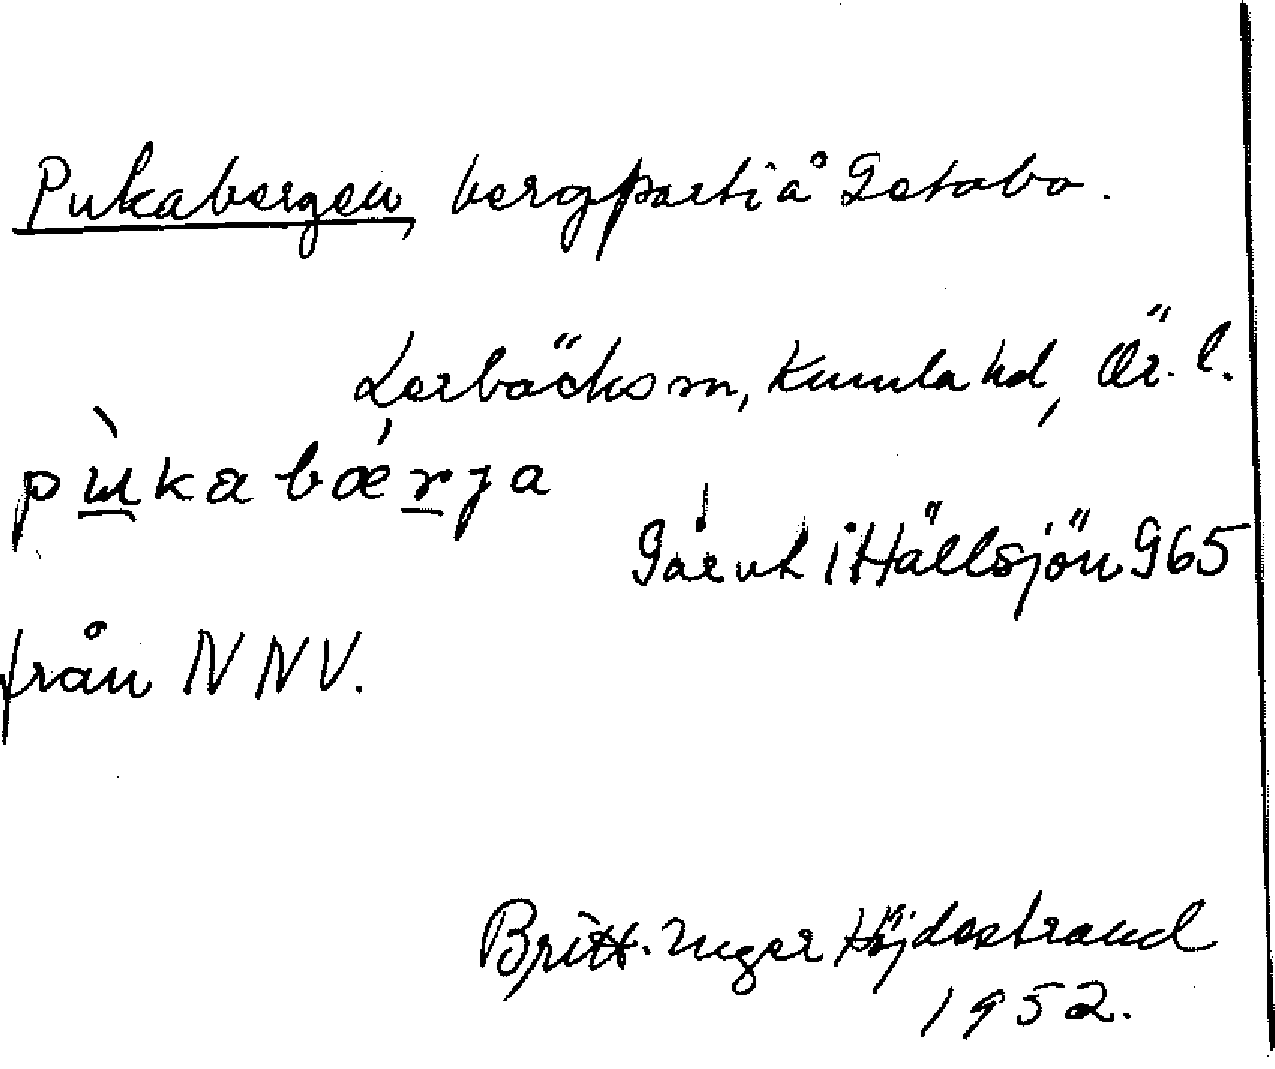 Pukabergen, bergparti å Getabo.
Lerbäcks sn, Kumla hd, Ör. l.
pùkabǽrja
i Hällsjön 965
från NNV.
Britt-Inger Höjdestrand
1952.